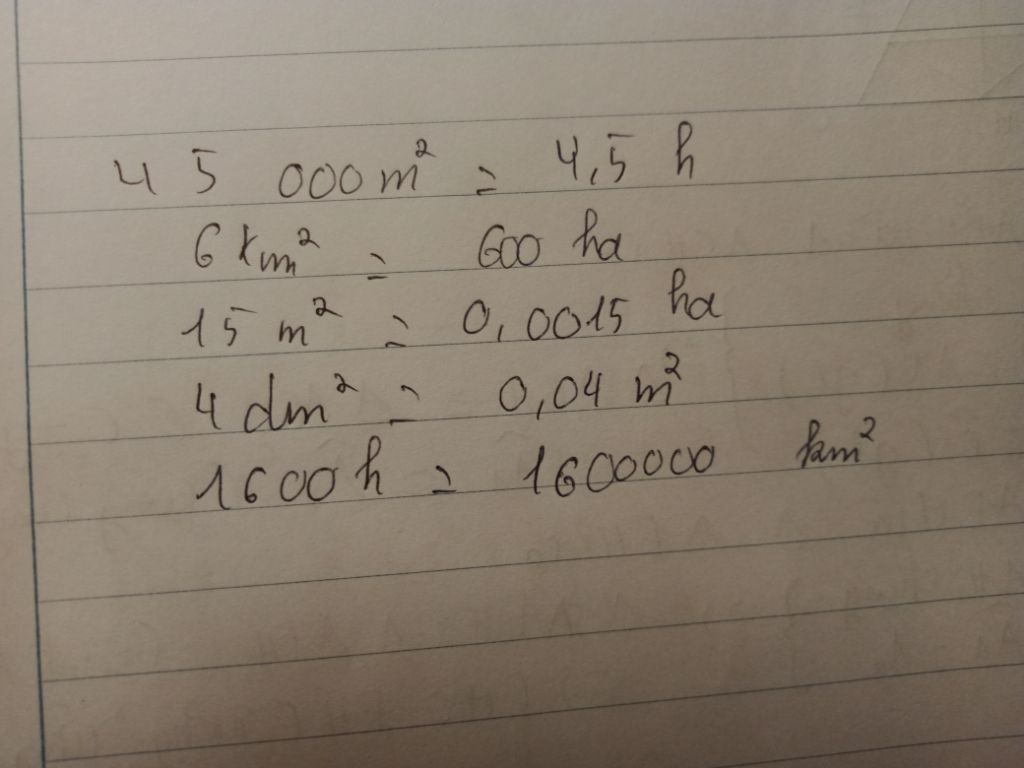 45 000 m² = 4,5 h
6 km² = 600 ha
15 m² = 0,0015 ha
4 dm² = 0,04 m²
1600 h = 1600000 km²